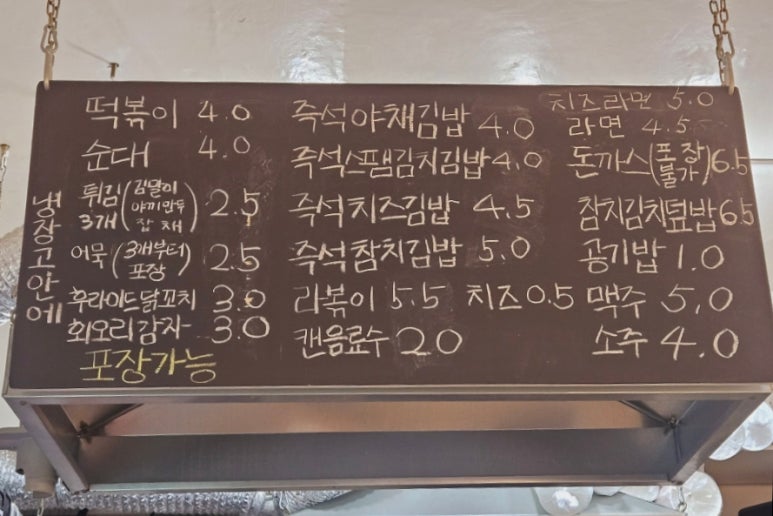 냉장고안에
떡볶이 4.0
순대 4.0
튀김 3개 (김말이 야끼만두 잡채) 2.5
어묵 (3개부터 포장) 2.5
후라이드닭꼬치 3.0
회오리감자 3.0
포장가능
즉석야채김밥 4.0
즉석스팸김치김밥 4.0
즉석치즈김밥 4.5
즉석참치김밥 5.0
라볶이 5.5 치즈 0.5
캔음료수 20
치즈라면 5.0
라면 4.5
돈까스 (포장 불가) 6.5
참치김치덮밥 6.5
공기밥 1.0
맥주 5.0
소주 4.0